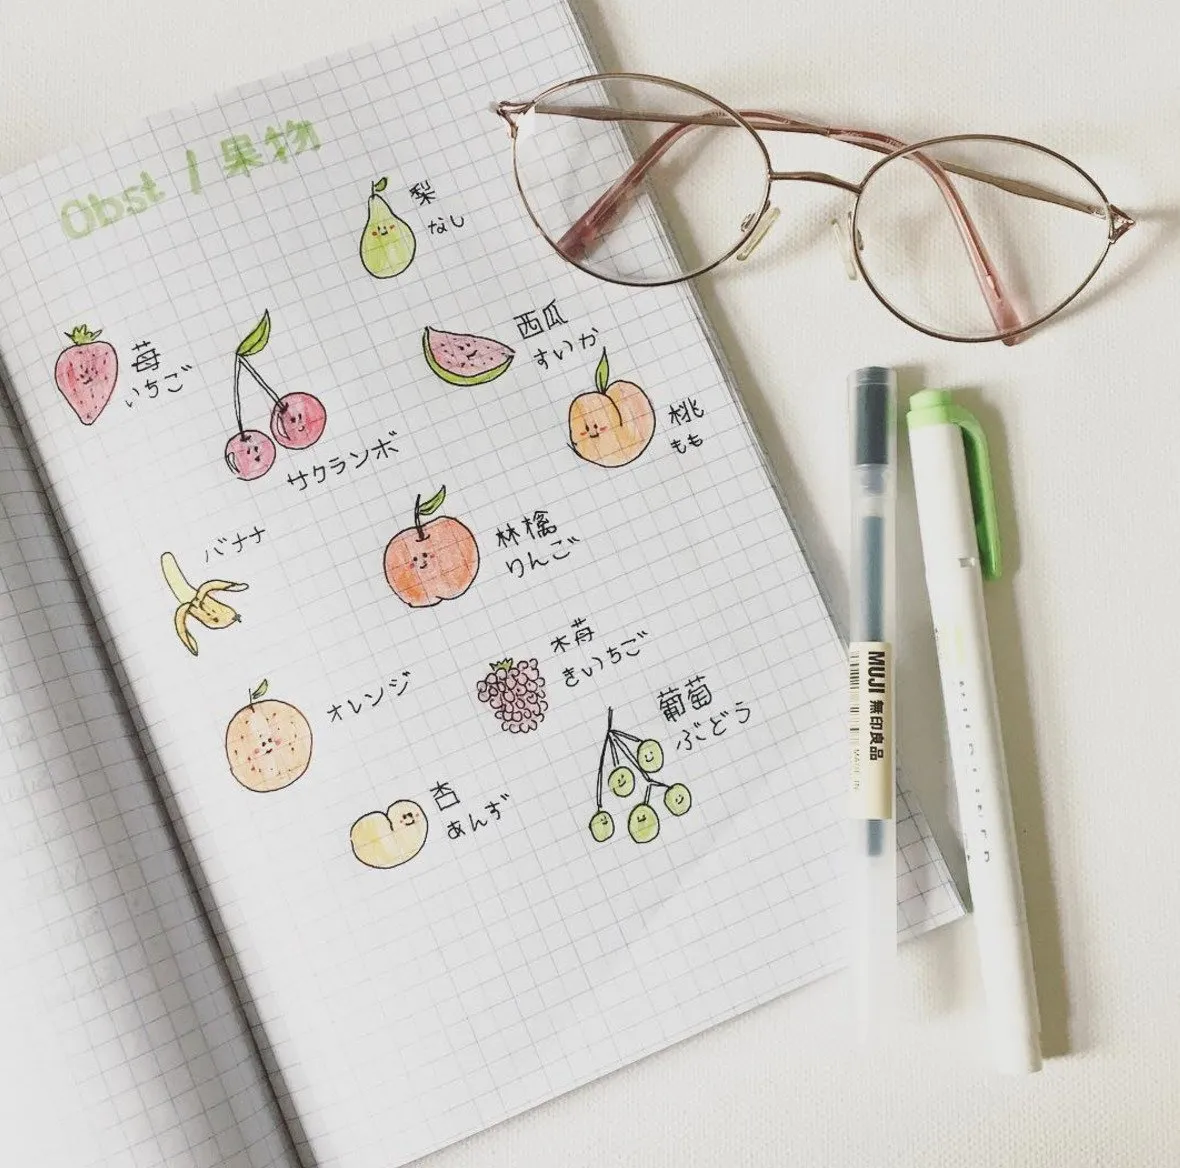 Obst / 果物
梨
なし
苺
いちご
西瓜
すいか
サクランボ
桃
もも
バナナ
林檎
りんご
木苺
きいちご
オレンジ
葡萄
ぶどう
杏
あんず
MUJI 無印良品
MADE IN